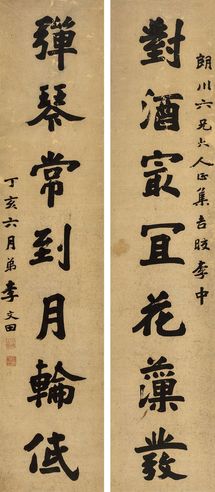 朗川六兄大人正集吉旼李中
對酒冣冝花藻發
彈琴常到月輪低
丁亥六月弟李文田